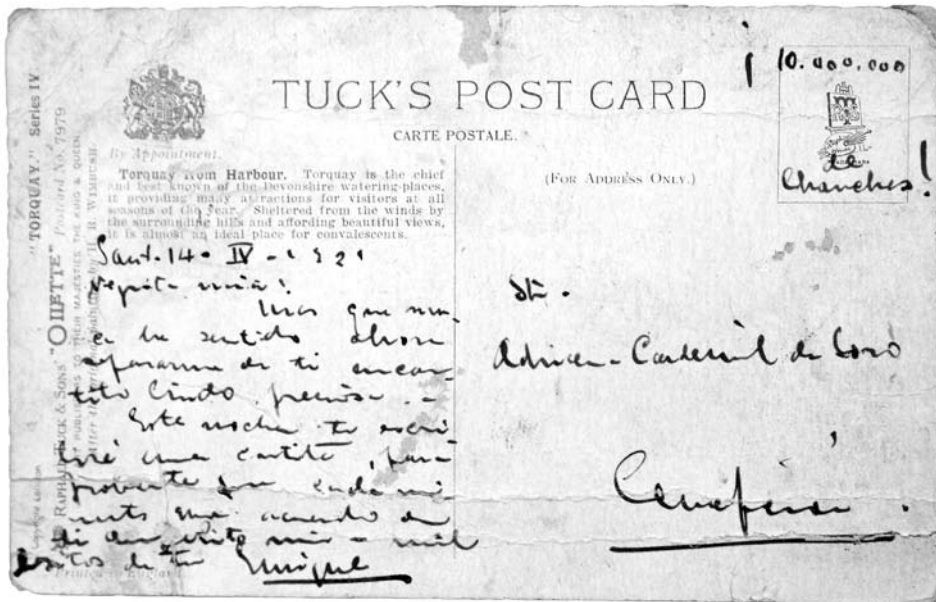 "TORQUAY," Series IV
Postcard No. 7979
RAPHAEL TUCK & SONS' "OILETTE"
PUBLISHERS TO THEIR MAJESTIES THE KING & QUEEN.
H. B. WIMBUSH
TUCK'S POST CARD
CARTE POSTALE.
By Appointment.
Torquay from Harbour. Torquay is the chief
and best known of the Devonshire watering-places,
it providing many attractions for visitors at all
seasons of the year. Sheltered from the winds by
the surrounding hills and affording beautiful views,
it is almost an ideal place for convalescents.
(FOR ADDRESS ONLY.)
¡ 10.000.000
de
Chanches!
Sant. 14 - IV - 1921
Negrita mia:
Mas que nun-
ca he sentido ahora
separarme de ti encan-
tito lindo precioso. -
Esta noche te escri-
biré una cartita, para
probarte que cada mi-
nuto me acuerdo de
ti mil
besitos de tu Enrique
Adriana Cardemil de
Printed in England.